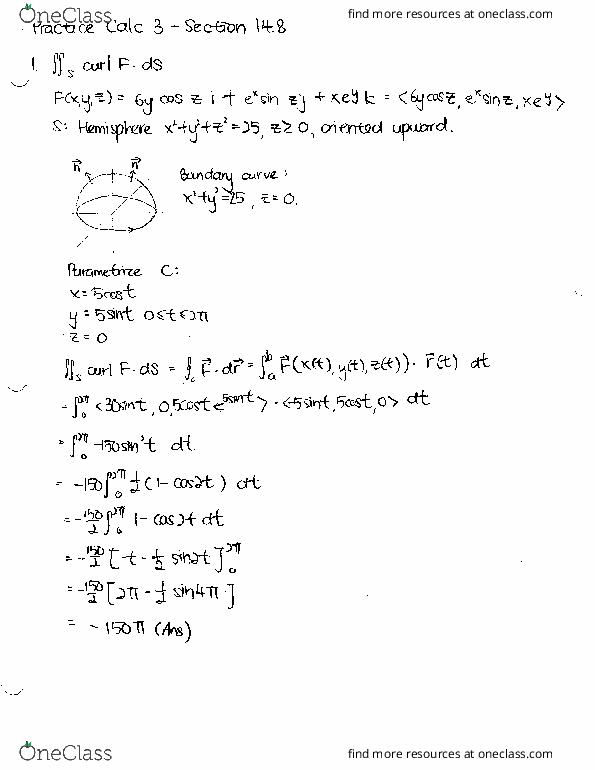 OneClass
find more resources at oneclass.com
Practice Calc 3 - Section 14.8
1. ∬_S curl F · dS
F(x,y,z) = 6y cos z i + e^x sin z j + xe^y k = <6y cos z, e^x sin z, xe^y>
S: Hemisphere x²+y²+z²=25, z≥0, oriented upward.
n⃗ n⃗
Boundary curve:
x²+y²=25, z=0.
Parametrize C:
x=5cost
y=5sint 0≤t≤2π
z=0
∬_S curl F·dS = ∮_C F⃗·dr⃗ = ∫_a^b F⃗(x(t),y(t),z(t))· r⃗(t) dt
= ∫_0^2π <30sint, 0, 5cost e^5sint> · <-5sint, 5cost, 0> dt
= ∫_0^2π -150sin²t dt.
= -150∫_0^2π 1/2 (1-cos2t) dt
= -150/2 ∫_0^2π 1-cos2t dt
= -150/2 [t - 1/2 sin2t]_0^2π
= -150/2 [2π - 1/2 sin4π]
= -150π (Ans)
OneClass
find more resources at oneclass.com